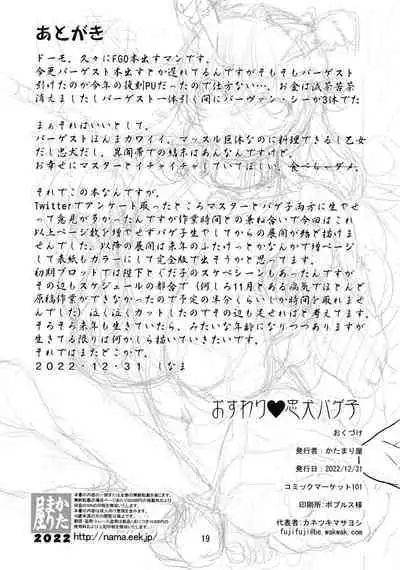 あとがき
ドーモ、久々にFGO本出すマンです。
今更バーゲスト本出すとか遅れてるんですがそもそもバーゲスト
引けたのが今年の復刻PUだったので仕方ない…、お金は滅茶苦茶
消えましたしバーゲスト一体引く間にバーヴァン・シーが3体でた
まぁそれはいいとして、
バーゲストほんまカワイイ、マッスル巨体なのに料理できるし乙女
だし忠犬だし、異聞帯での結末はあんなんですけど。
お幸せにマスターとイチャイチャしていてほしい。食べちゃダメ。
それでこの本なんですが、
Twitterでアンケート取ったところマスターとバゲ子両方に生やせ
って意見が多かったんですが作業時間との兼ね合いで今回はこれ
以上ページ数を増やせずバゲ子生やしてからの展開が殆ど描けま
せんでした。以降の展開は来年のふたけっとかなんかで増ページ
して表紙もカラーにして完全版で出そうかと思ってます。
初期プロットでは陛下とぐだ子のスケベシーンもあったんですが
その辺もスケジュールの都合で(何しろ11月とある病気でほとんど
原稿作業ができなかったので予定の半分くらいしか時間を取れませ
んでした)泣く泣くカットしたのでその辺も足せればと考えてます。
そろそろ来年も生きていたら、みたいな年齢になりつつありますが
生きてる限りは何かしら描いていきたいです。
それではまたどこかで。
2022・12・31 しなま
おすわり♥忠犬バゲ子
おくづけ
発行者：かたまり屋
発行日：2022/12/31
コミックマーケット101
印刷所：ポプルス様
代表者：カネツキマサヨシ
fujifuji@be.wakwak.com
かたまり屋
2022
http://nama.eek.jp/
19